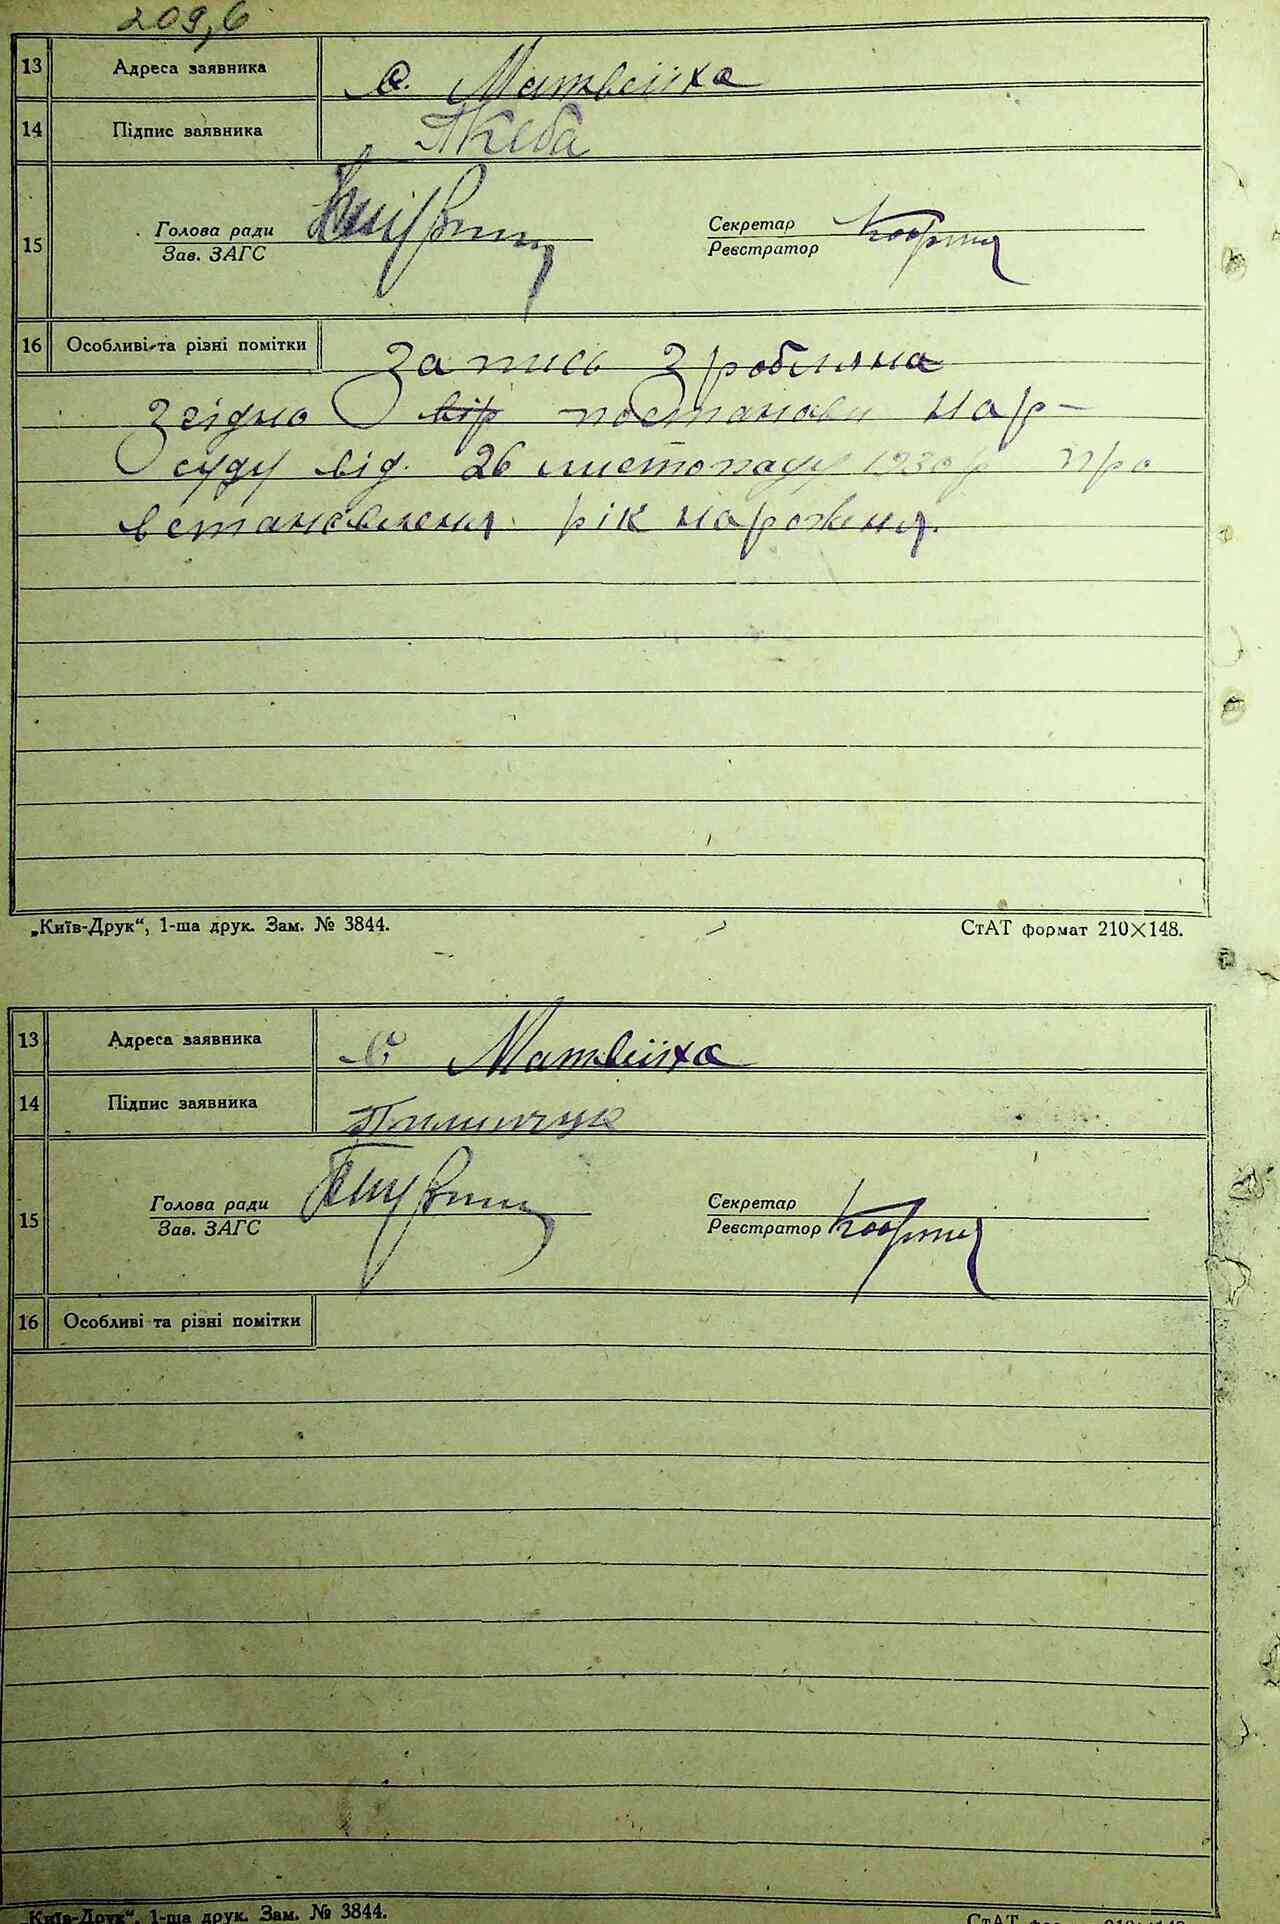 209,б
13 Адреса заявника с. Матвеіїха
14 Підпис заявника ПКеба
15 Голова ради Секретар
Зав. ЗАГС Реєстратор
16 Особливі та різні помітки Запись зроблина
згідно від постанови нар-
суду від. 26 листопаду 1930 р про
встановленя рік нароженя.
„Київ-Друк“, 1-ша друк. Зам. № 3844. СтАТ формат 210×148.
13 Адреса заявника с Матвеіїха
14 Підпис заявника Пилипчук
15 Голова ради Секретар
Зав. ЗАГС Реєстратор
16 Особливі та різні помітки
„Київ-Друк“, 1-ша друк. Зам. № 3844. СтАТ